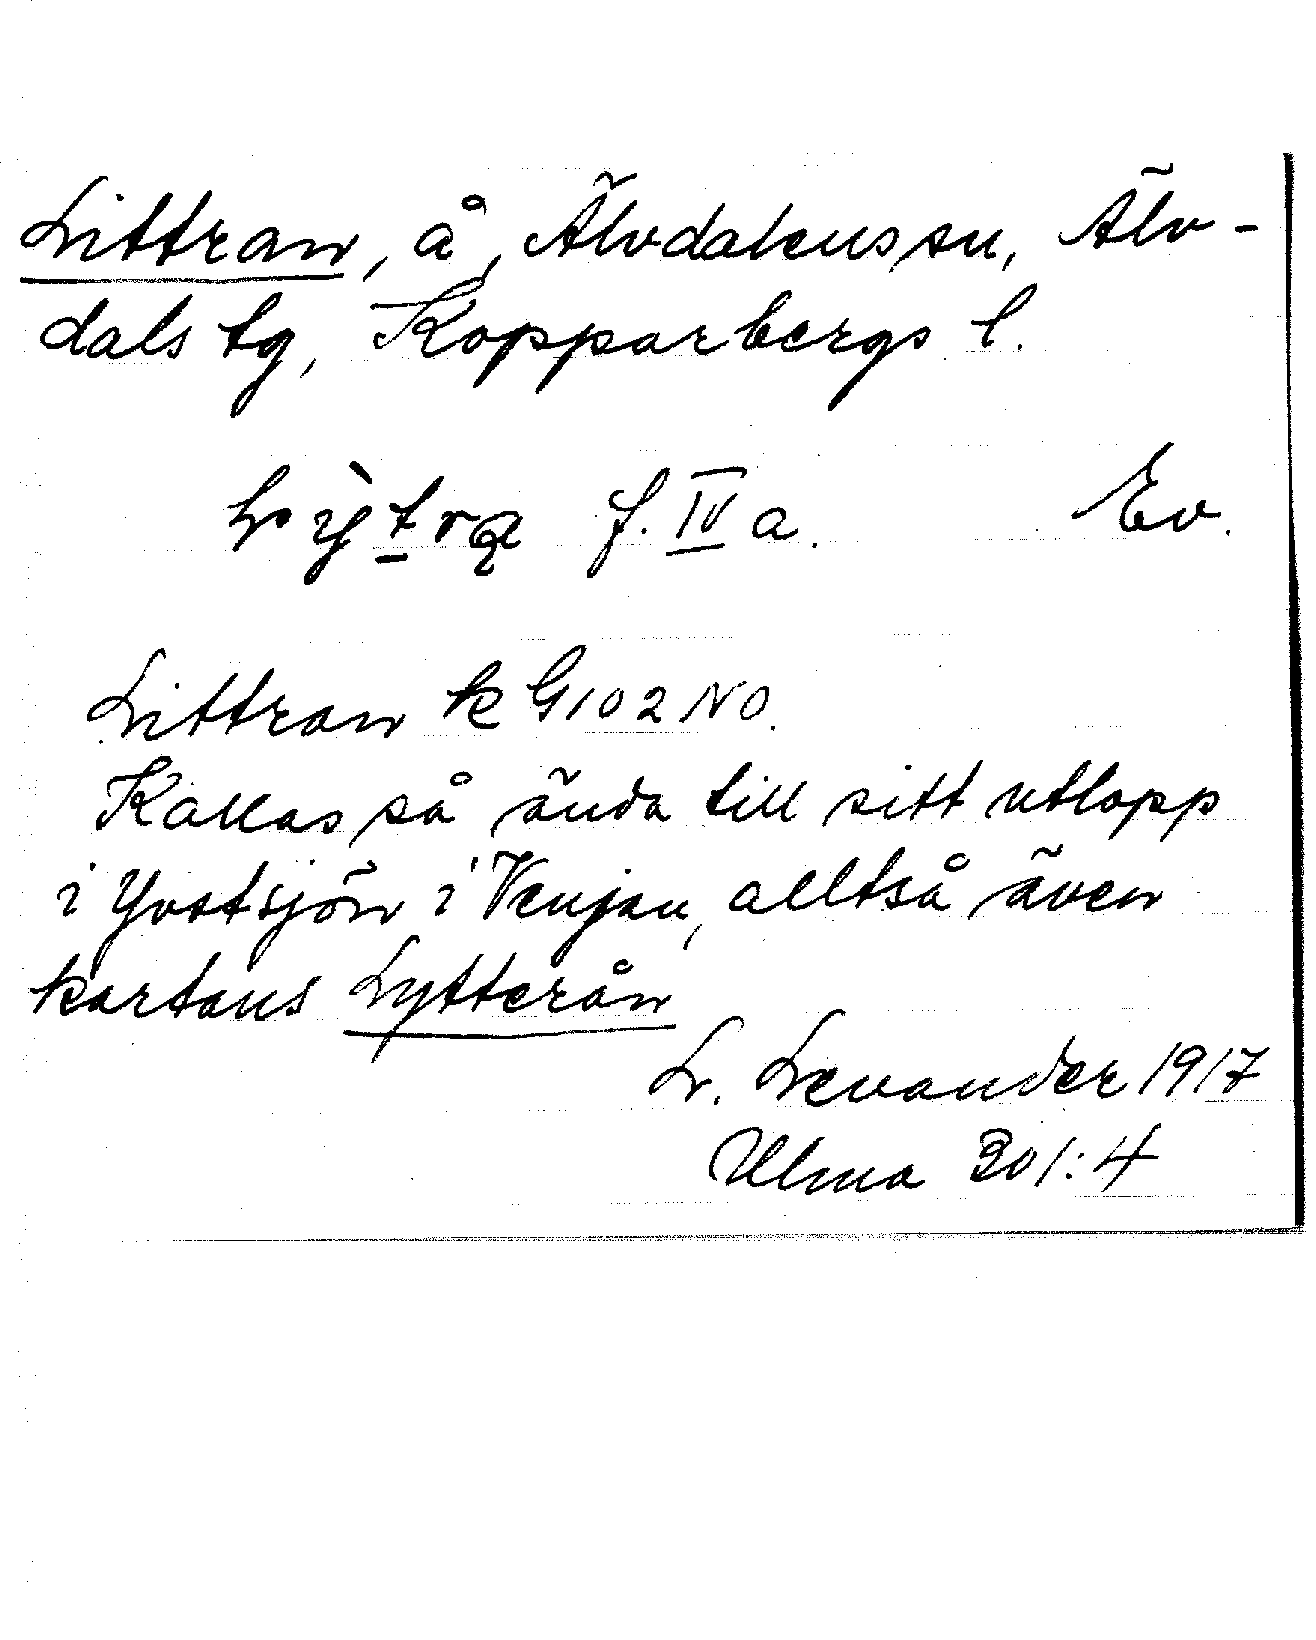 Littran, å, Älvdalens sn, Älv-
dals tg, Kopparbergs l.
f. IV a. Ev.
Littran k G102 NO.
Kallas så ända till sitt utlopp
i Yvatsjön i Venjan, alltså även
kartans Lytterån
L. Levander 1917
Ulma 301:4